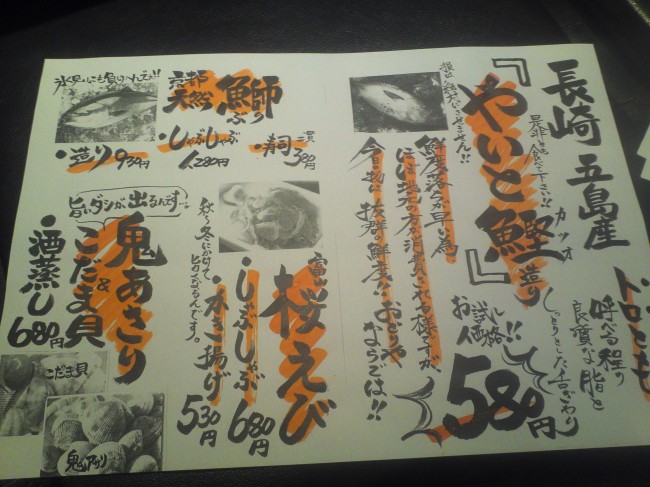 長崎 五島産
是非とも食べて下さい!!
『やいと鰹』造り
カツオ
トロとも
呼べる程り
良質な脂と
しっとりとした舌ざわり
お試し価格!!
580円
損は絶対にさせません!!
鮮度落ちが早い為
ほぼ地元の方が消費される様ですが、
今日の物は抜群の鮮度!!おどりや
ならでは!!
氷見にも負けへんでぇ!!
京都
天然 鰤
ぶり
・造り 930円
・しゃぶしゃぶ
1人 1280円
・寿司 二貫 380円
富山 桜えび
・しゃぶしゃぶ 680円
・かき揚げ 530円
秋〜冬にかけて
旨くなるんです。
旨いダシが出るんです…
鬼あさり
&
こだま貝
・酒蒸し 680円
こだま貝
鬼アサリ